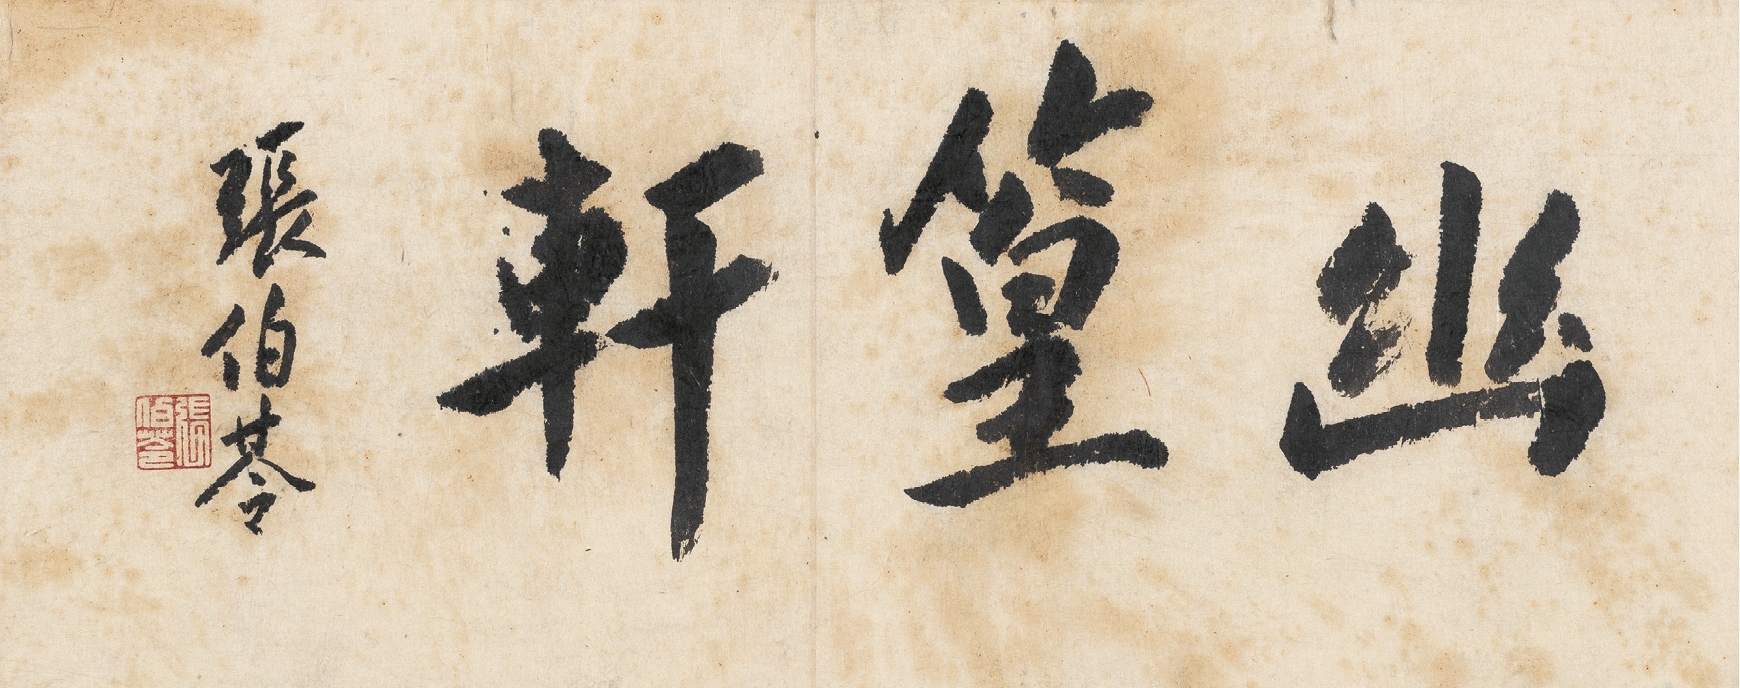 幽篁軒
張伯苓
張伯苓印